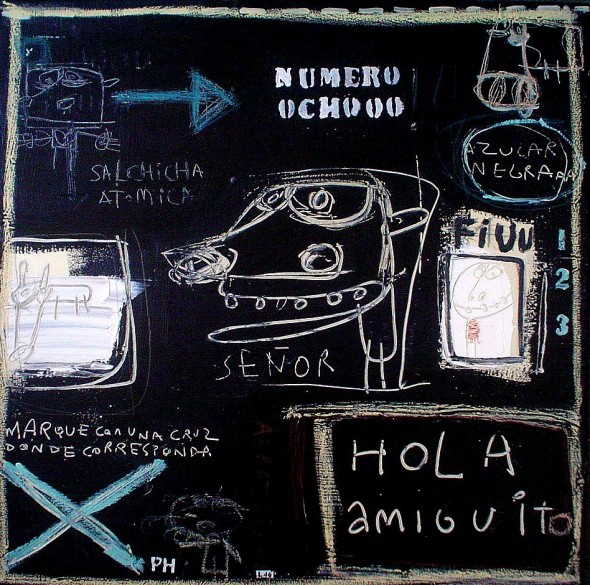 NUMERO
OCHOOO
AZUCAR
NEGRAAA
SALCHICHA
ATOMICA
FiUU
1
2
3
SEÑOR
MARQUE CON UNA CRUZ
DONDE CORRESPONDA
HOLA
amiguito
PH